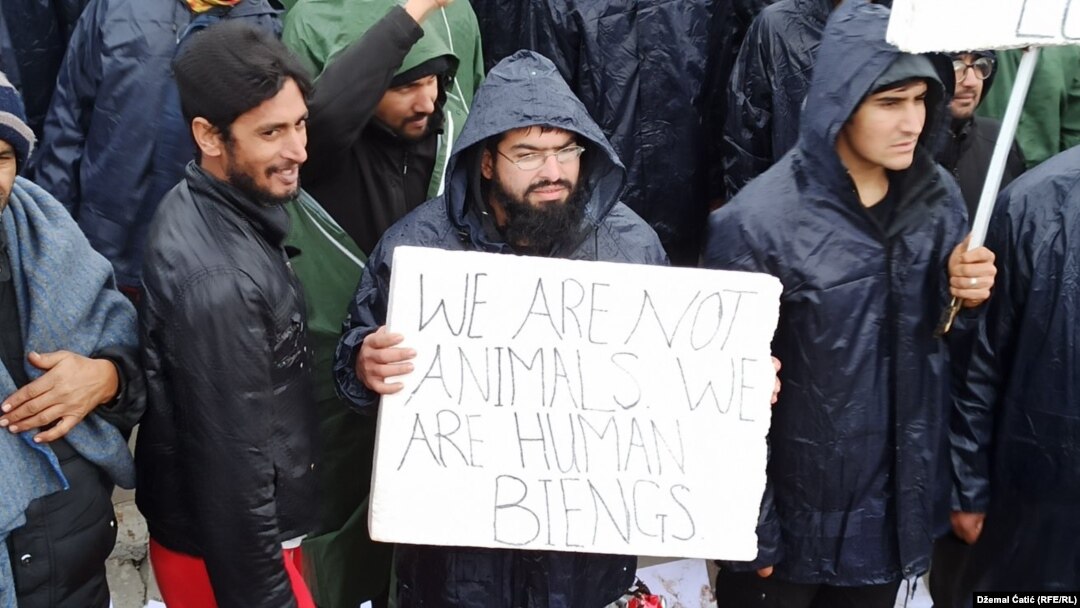 WE ARE NOT
ANIMALS. WE
ARE HUMAN
BIENGS.
Džemal Ćatić (RFE/RL)